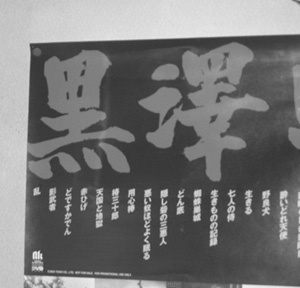 黒澤
酔いどれ天使
野良犬
生きる
七人の侍
生きものの記録
蜘蛛巣城
どん底
隠し砦の三悪人
悪い奴ほどよく眠る
用心棒
椿三十郎
天国と地獄
赤ひげ
どですかでん
影武者
乱